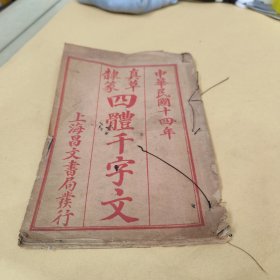 中華民國十四年
真草
隸篆
四體千字文
上海昌文書局發行